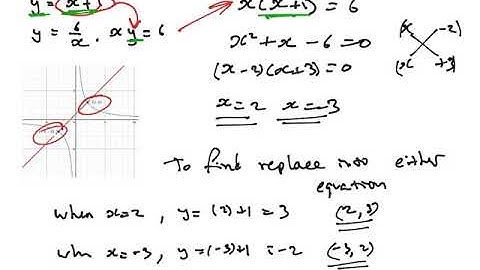 y = (x+1)
x(x+1) = 6
y = 6/x . xy = 6
x² + x - 6 = 0
(x -2)
(x +3)
(x-2)(x+3) = 0
x = 2 x = -3
To find replace into either
equation
when x=2 , y = (2)+1 = 3 (2, 3)
when x=-3, y = (-3)+1 = -2 (-3, 2)